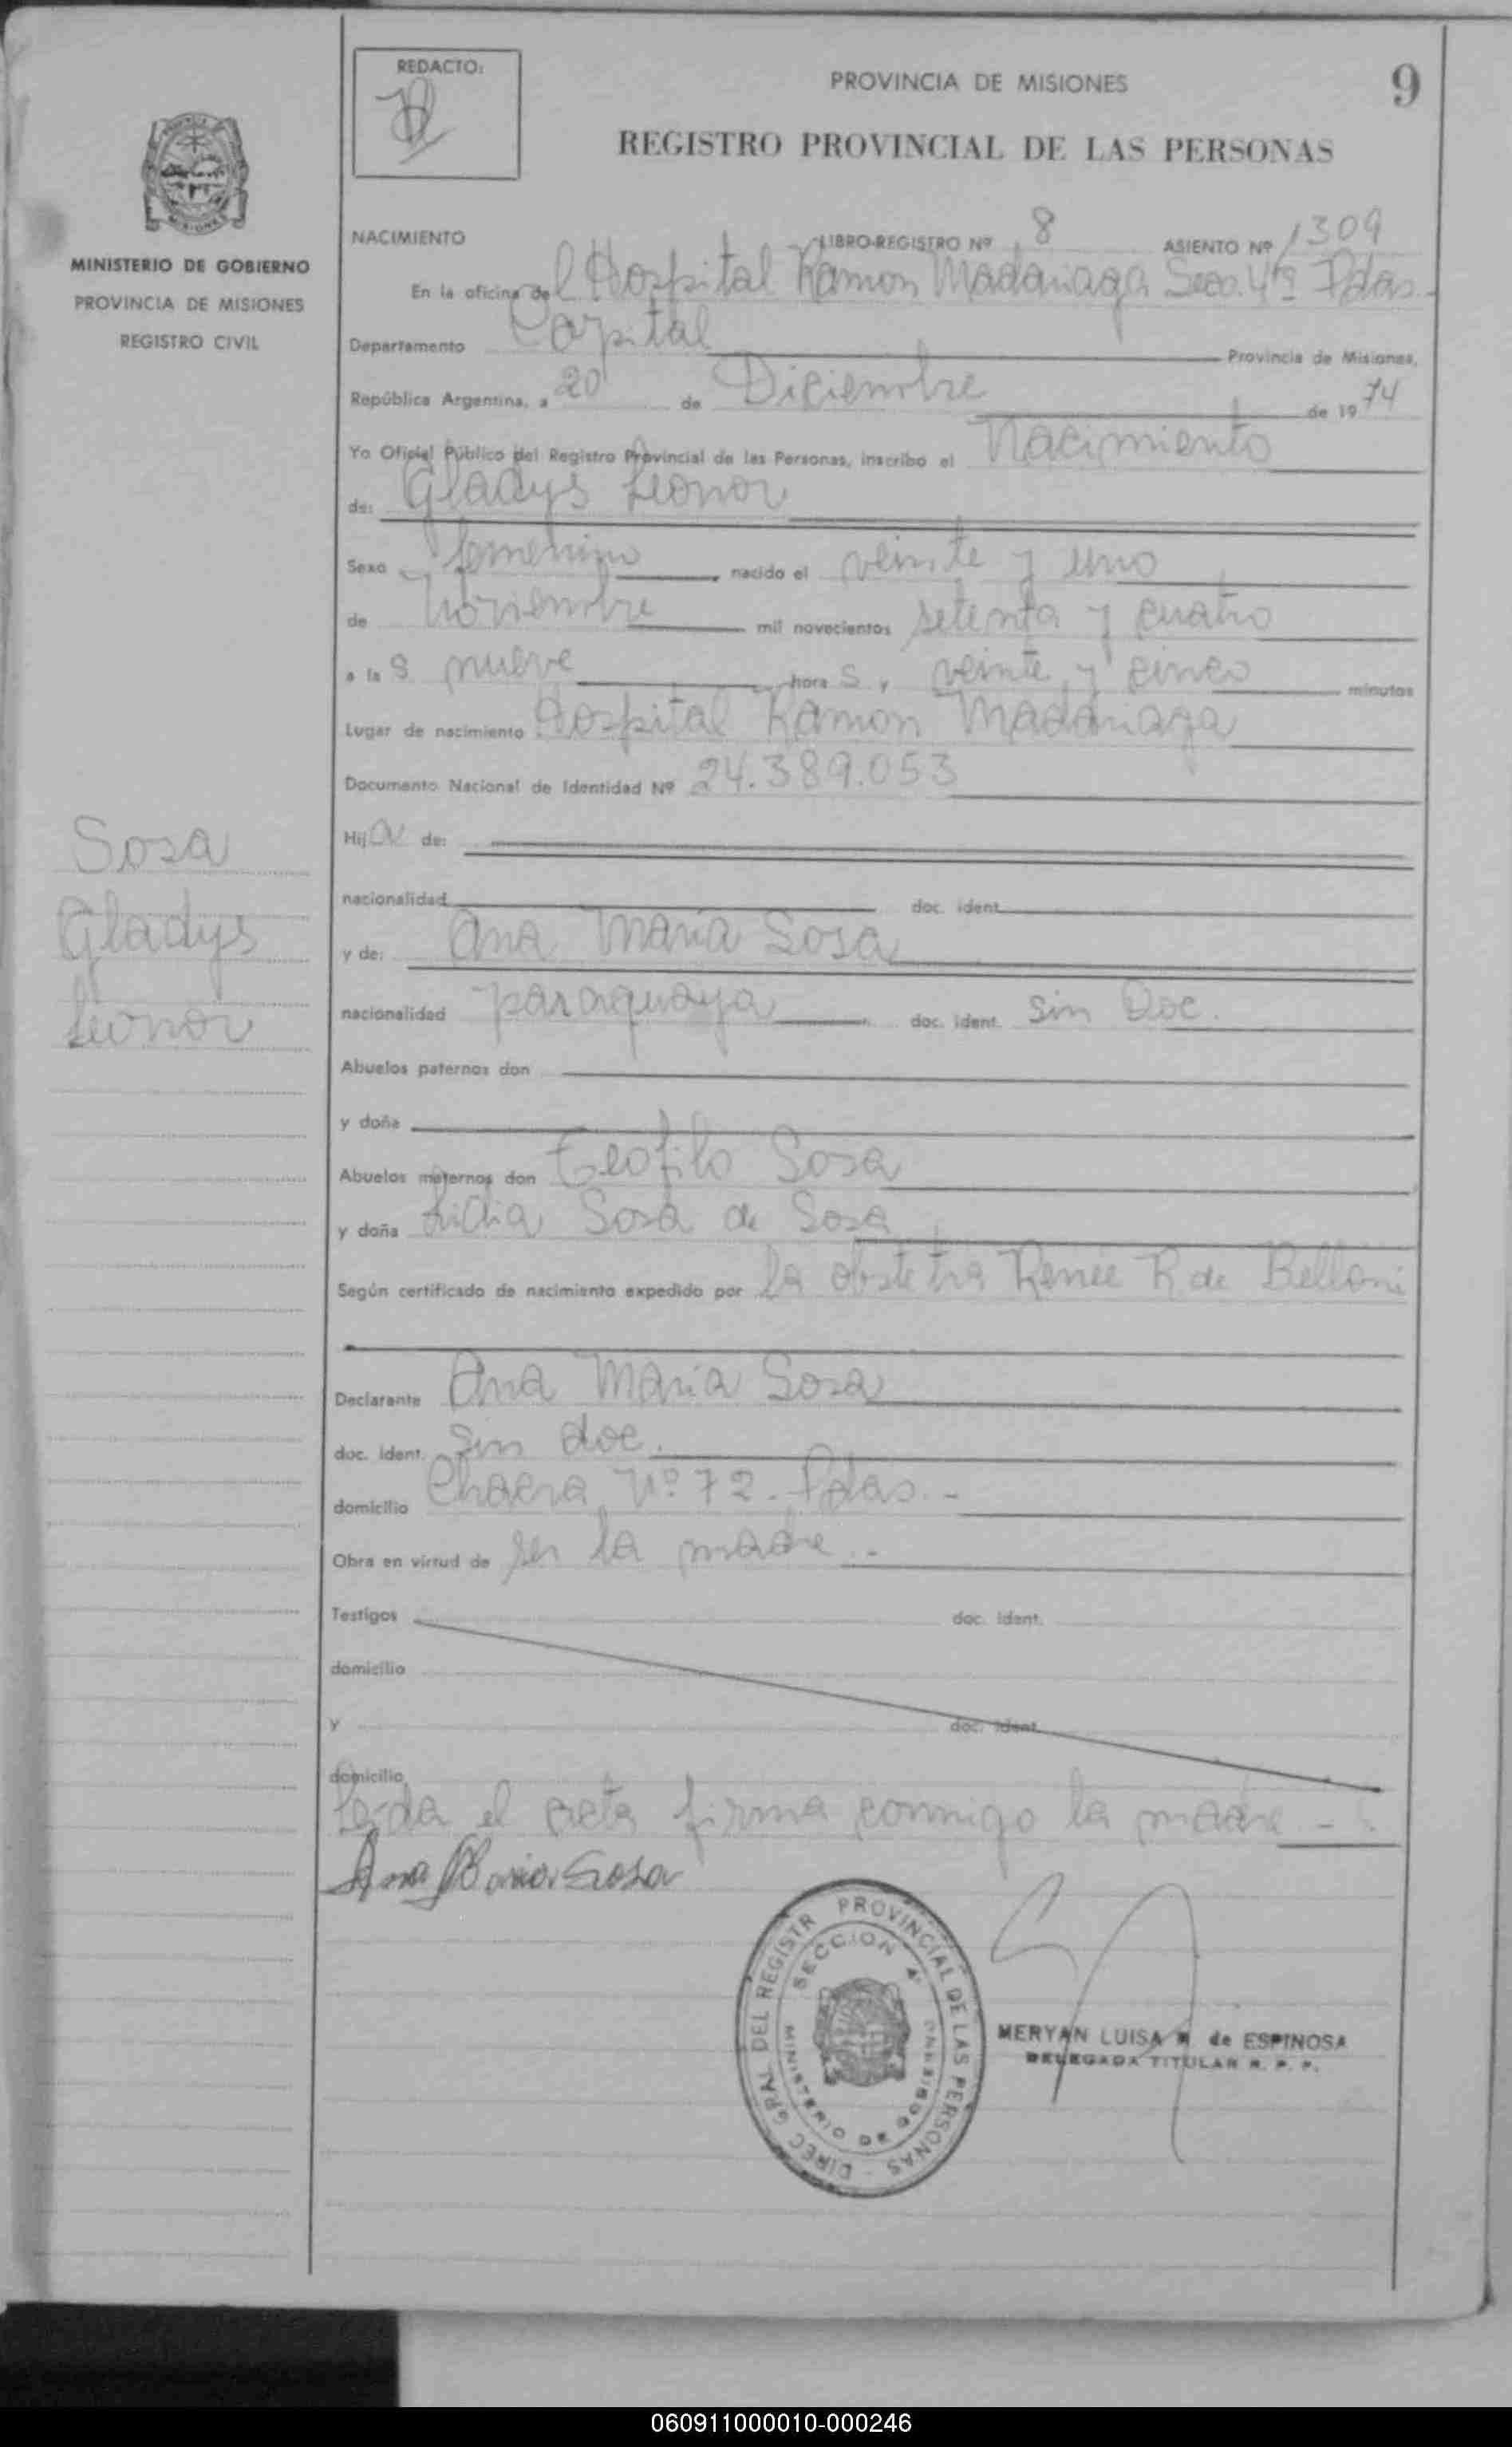 REDACTO:
PROVINCIA DE MISIONES
9
REGISTRO PROVINCIAL DE LAS PERSONAS
MINISTERIO DE GOBIERNO
PROVINCIA DE MISIONES
REGISTRO CIVIL
NACIMIENTO LIBRO-REGISTRO Nº 8 ASIENTO Nº 1309
En la oficina del Hospital Ramon Madariaga Secc. 4ta Pdas.-
Departamento Capital Provincia de Misiones,
República Argentina, a 20 de Diciembre de 1974
Yo Oficial Público del Registro Provincial de las Personas, inscribo el Nacimiento
de: Gladys Leonor
Sexo femenino nacido el veinte y uno
de Noviembre mil novecientos setenta y cuatro
a las nueve horas y veinte y cinco minutos
Lugar de nacimiento Hospital Ramon Madariaga
Documento Nacional de Identidad Nº 24.389.053
Hija de:
nacionalidad doc. ident.
y de: Ana Maria Sosa
nacionalidad paraguaya doc. ident. Sin Doc.
Abuelos paternos don
y doña
Abuelos maternos don Teofilo Sosa
y doña Lidia Sosa de Sosa
Según certificado de nacimiento expedido por la obstetra Renée R de Belloni
Declarante Ana Maria Sosa
doc. ident. Sin doc.
domicilio Chacra Nº 72. Pdas.-
Obra en virtud de ser la madre.-
Testigos doc. ident.
domicilio
y doc. ident.
domicilio
Leida el acta firma conmigo la madre -
Ana Maria Sosa
Sosa
Gladys
Leonor
DIREC GRAL DEL REGISTR PROVINCIAL DE LAS PERSONAS
SECCION 4ª
MINISTERIO DE GOBIERNO
MISIONES
MERYAN LUISA de ESPINOSA
DELEGADA TITULAR R. P. P.
060911000010-000246